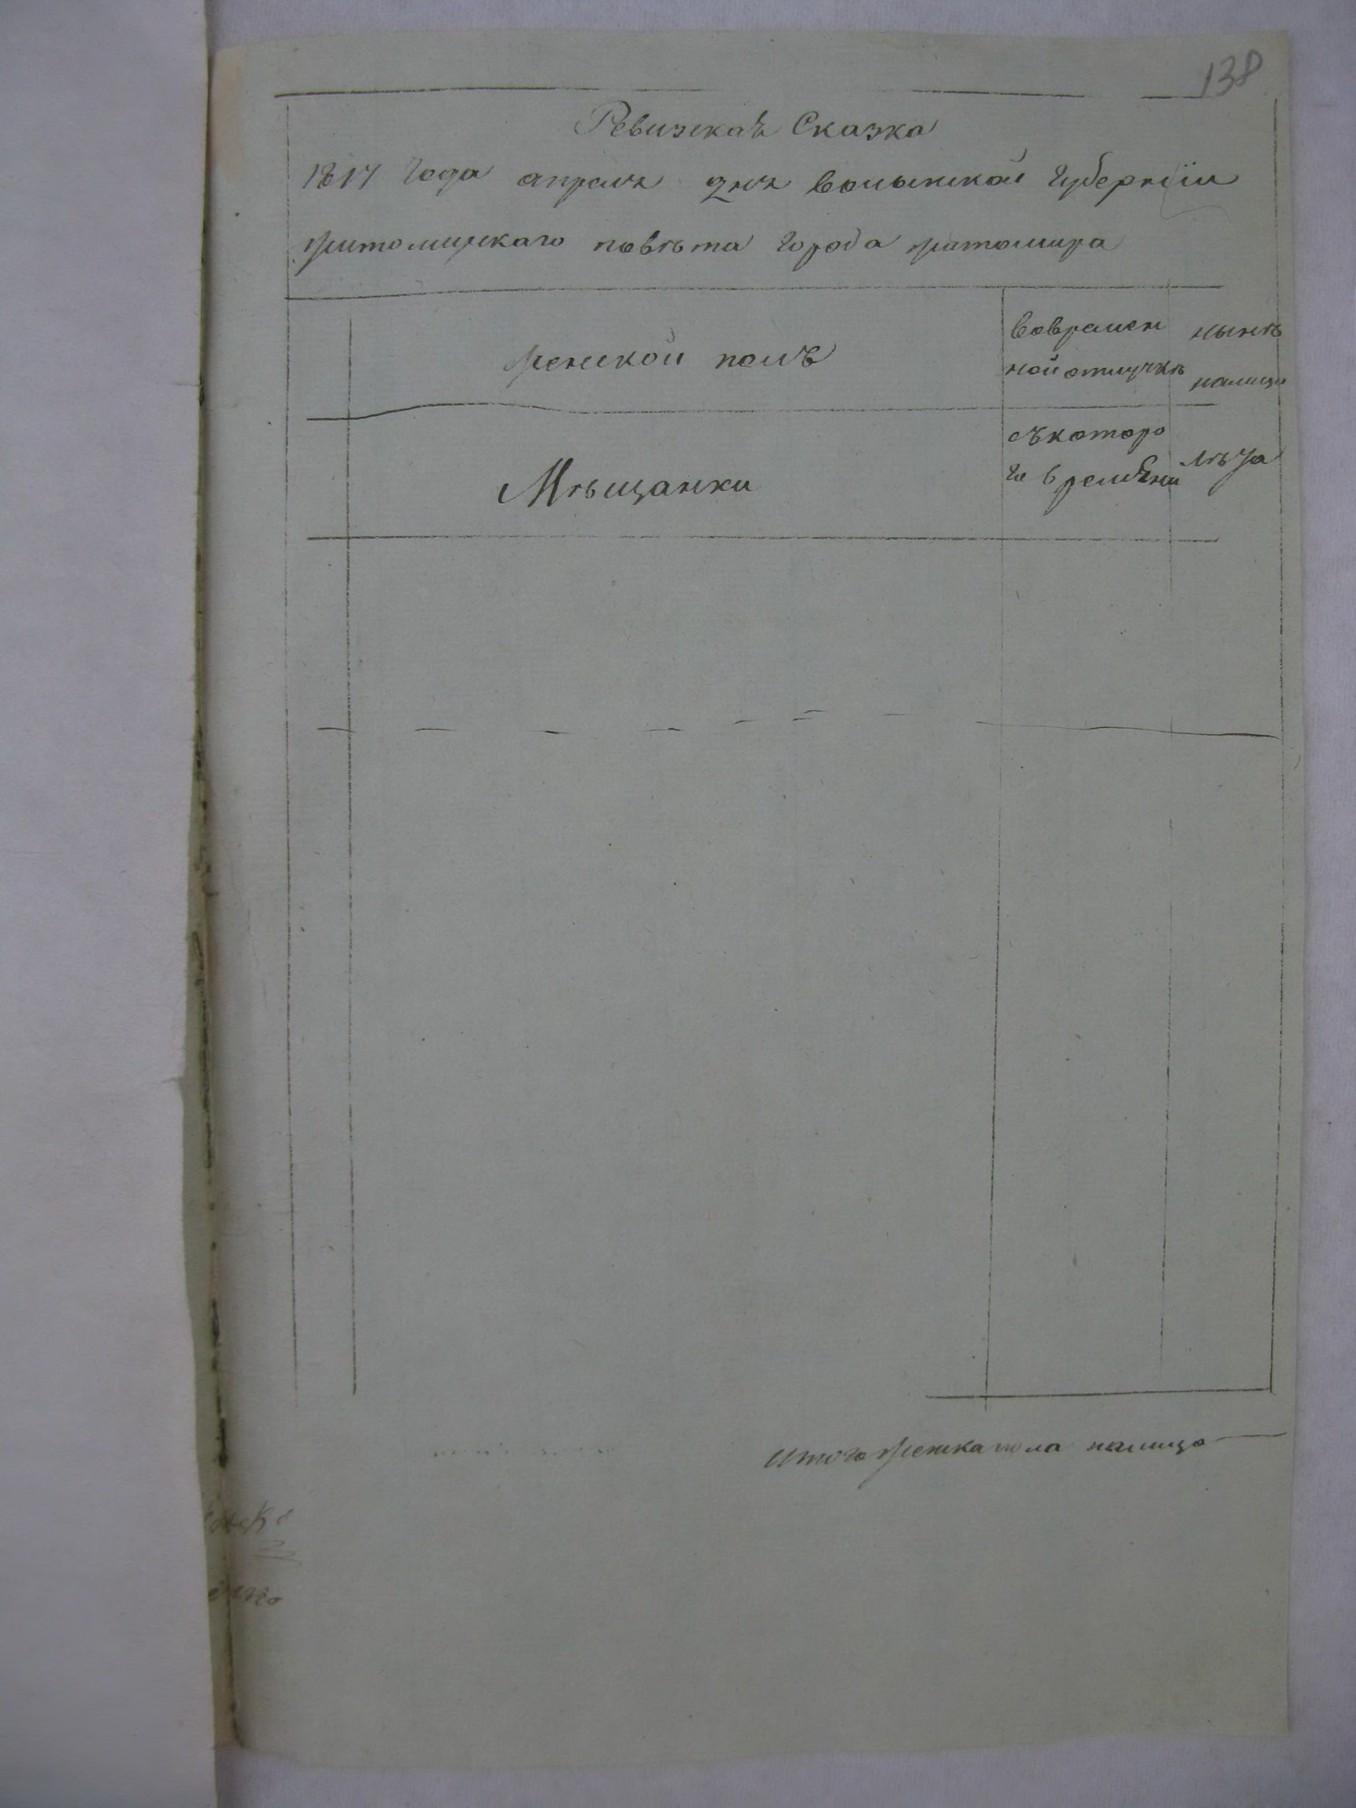 138
Ревизская Сказка
1817 Года апреля дня волынской Губернїи
житомирскаго повѣта города житомира
женской полъ
вовремен
ной отлучкѣ
нынѣ
налицо
Мѣщанки
съ которо
го времѣни
Лѣта
итого женска пола налицо